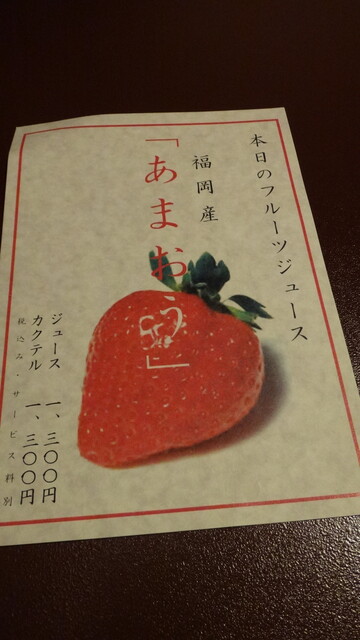 本日のフルーツジュース
福岡産
「あまおう」
ジュース 一、三〇〇円
カクテル 一、三〇〇円
税込み・サービス料別